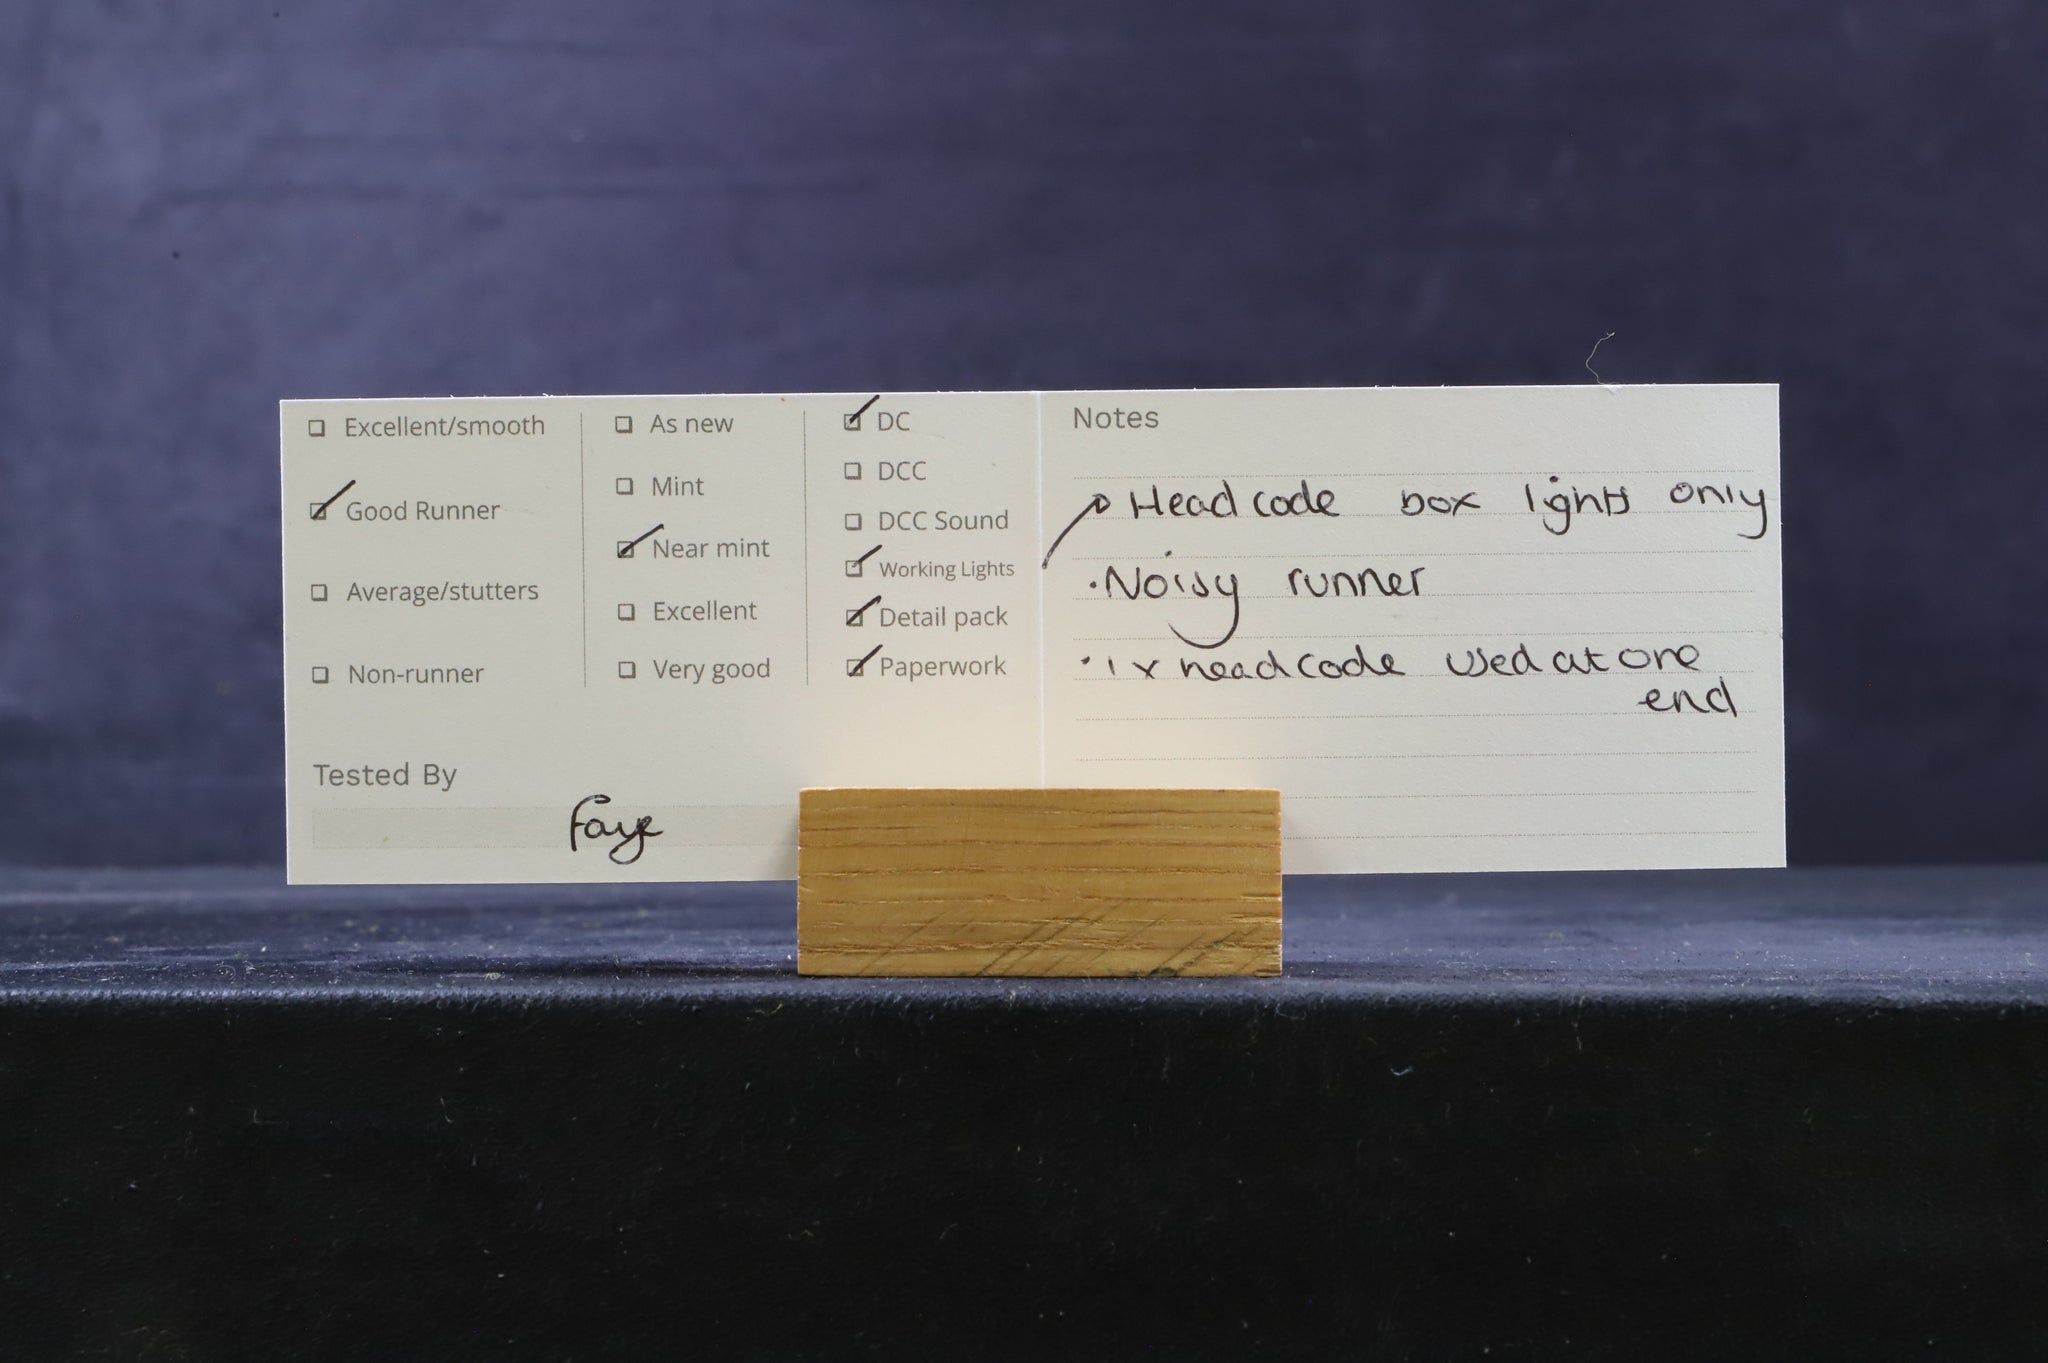 Excellent/smooth
Good Runner
Average/stutters
Non-runner
As new
Mint
Near mint
Excellent
Very good
DC
DCC
DCC Sound
Working Lights
Detail pack
Paperwork
Tested By
Faye
Notes
Headcode box lights only
·Noisy runner
·1x headcode used at one
end